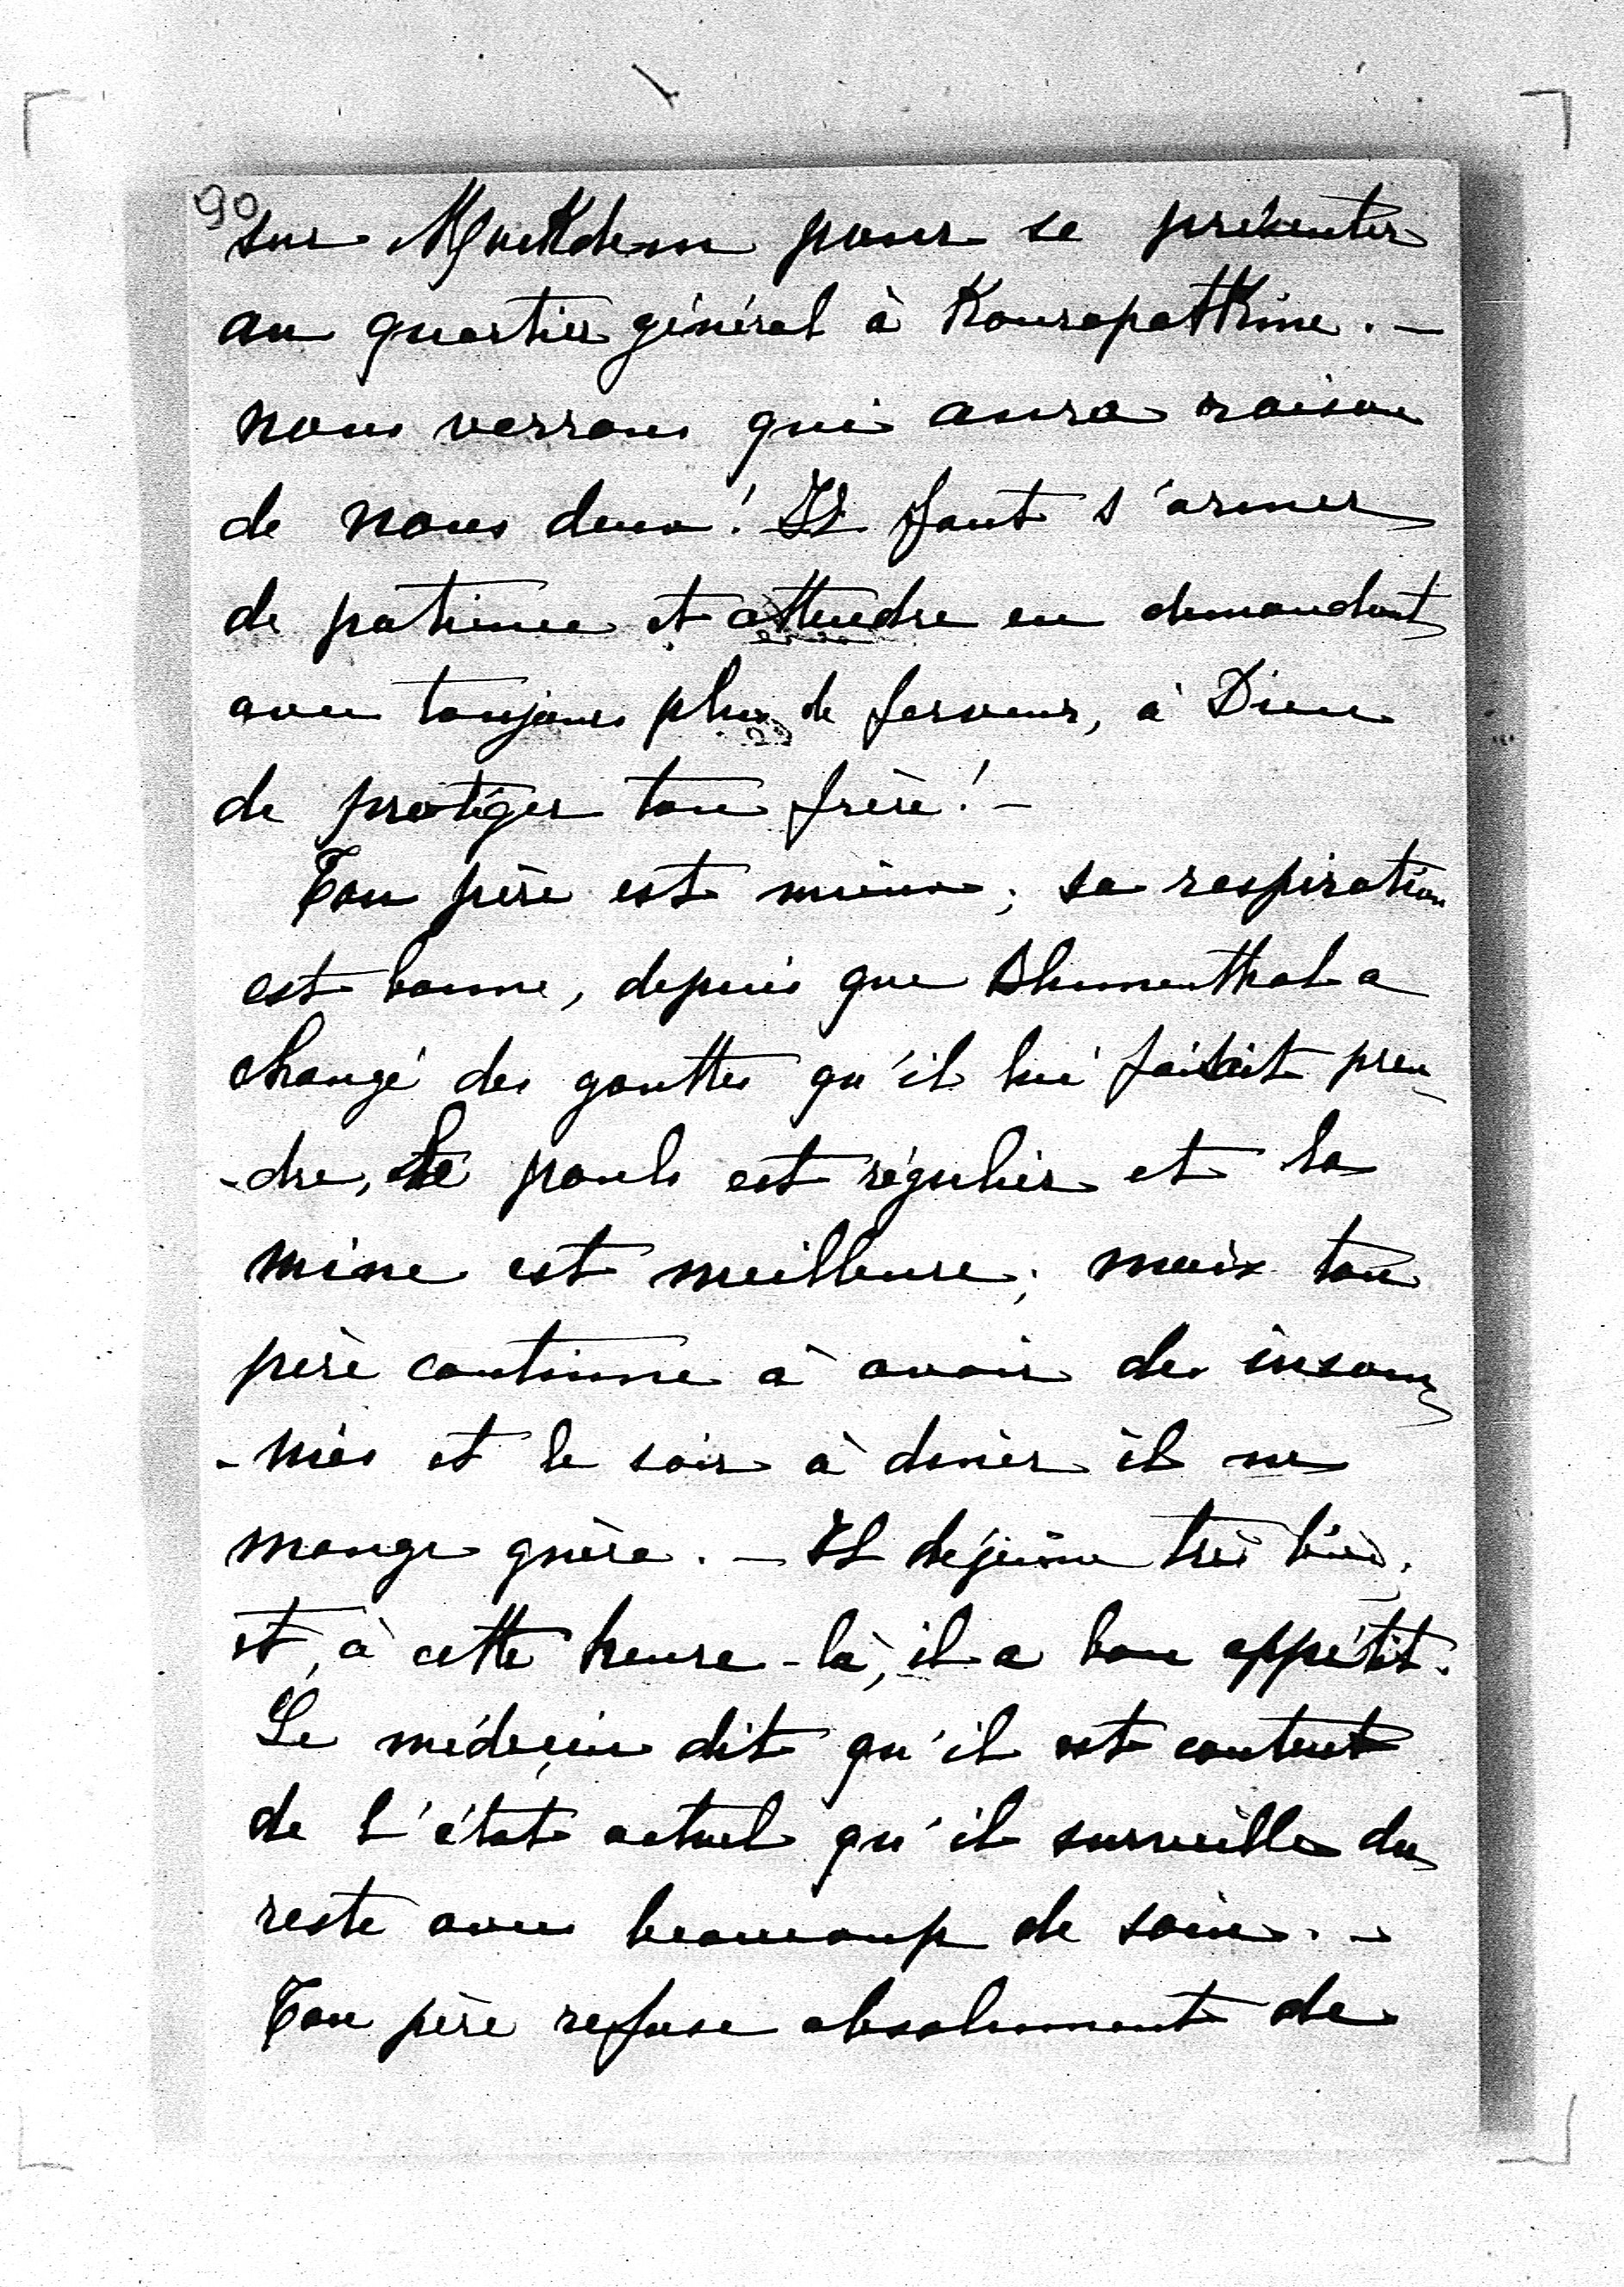 90
sur Moukden pour se présenter
au quartier général à Kouropatkine. —
nous verrons qui aura raison
de nous deux! Il faut s'armer
de patience et attendre en demandant
avec toujours plus de ferveur, à Dieu
de protéger ton frère! —
Ton père est mieux; sa respiration
est bonne, depuis que Blumenthal a
changé des gouttes qu'il lui faisait pren
-dre, le pouls est régulier et la
mine est meilleure; mais ton
père continue à avoir des insom
-nies et le soir à diner il ne
mange guère. — Il déjeune très bien,
et, à cette heure-là, il a bon appétit.
Le médecin dit qu'il est content
de l'état actuel qu'il surveille du
reste avec beaucoup de soin. —
Ton père refuse absolument de